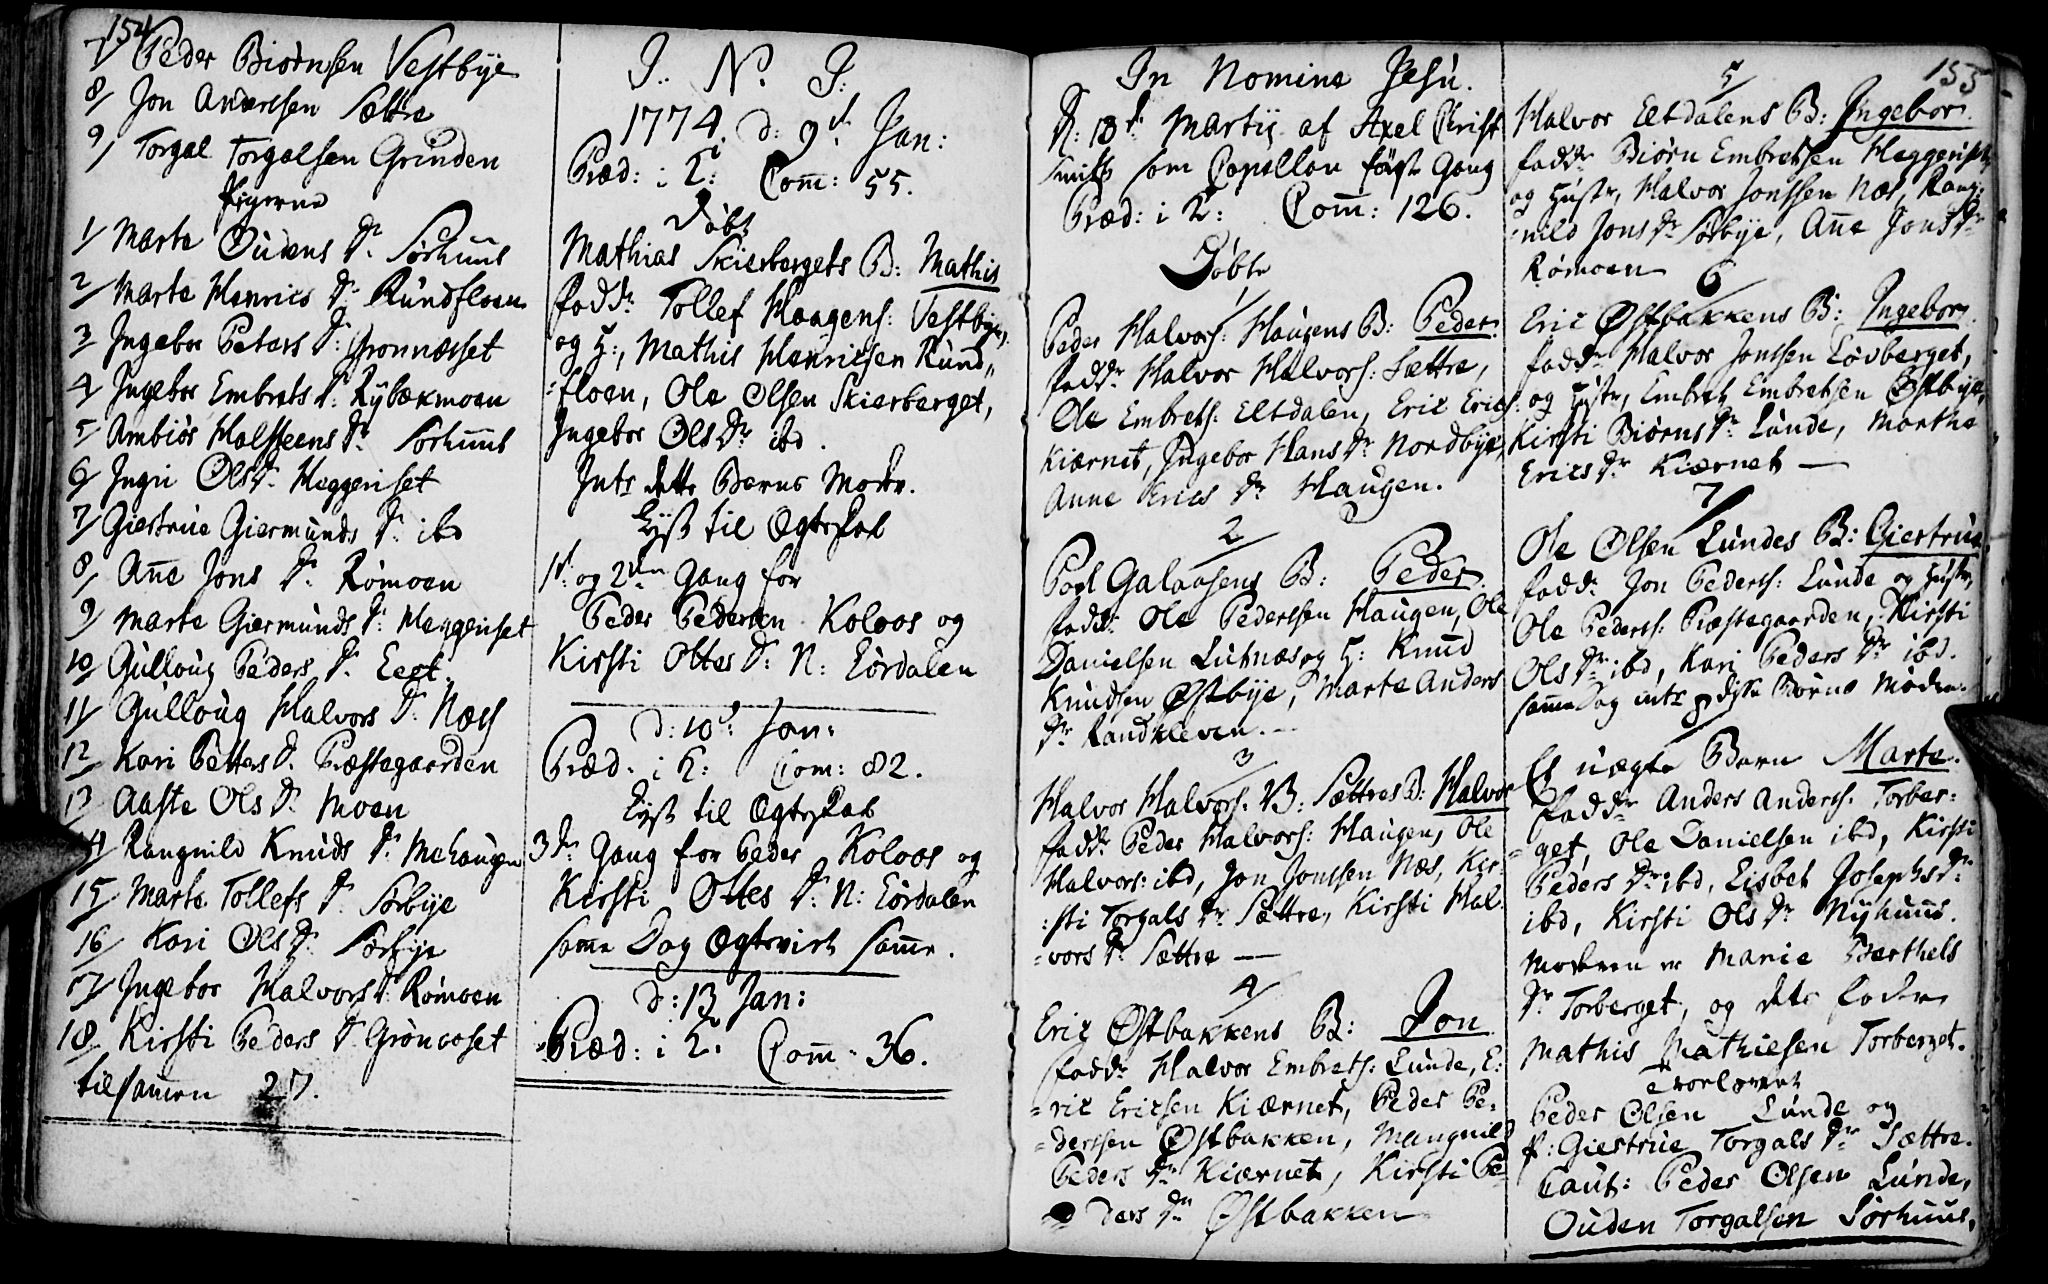 154
7/ Peder Biørnsen Vestbye
8/ Jon Anderssen Sættre
9/ Torgal Torgalsen Grinden
Pigerne
1/ Marte Oudens Dr. Sørhuus
2/ Marte Henrics Dr. Rundfloen
3/ Ingebor Peters Dr: Grønnæsset
4/ Ingebor Embrets Dr. Rybækmoen
5/ Ambiør Halsteens Dr. Sørhuus
6/ Ingri Ols Dr. Heggeriset
7/ Giertrue Giermunds Dr. ibd
8/ Añe Jons Dr. Rømoen
9/ Marte Giermunds Dr. Heggeriset
10/ Gulloug Peders Dr. Eegt.
11/ Gulloug Halvors Dr. Næss
12/ Kari Petters Dr. Præstegaarden
13/ Aaste Ols Dr. Moen
14/ Rangnild Knuds Dr. Mehaugen
15/ Marte Tollefs Dr. Sørbye
16/ Kari Ols Dr. Sørbye
17/ Ingebor Halvors Dr. Rømoen
18/ Kirsti Peders Dr. Grønoset
tilsamen 27.
J. N. J:
1774. d: 9d. Jan:
Præd: i T: Com̃: 55.
Døbt
Mathias Skierbergets B: Mathis
fadd: Tollef Haagens: Vestbye,
og H:, Mathis Henricsen Rund„
:floen, Ole Olsen Skierberget,
Ingebor Ols Dr ibd.
Intr dette Barns Moder.
Lyst til Ægteskab
1st og 2den Gang for
Peder Pedersen Koloos og
Kirsti Ottes D: N: Lørdalen
d: 10d: Jan:
Præd: i T: Com: 82.
Lyst til Ægteskab
3die Gang for Peder Koloos og
Kirsti Ottes D: N: Lørdalen
sam̃e Dag Ægteviet sam̃e.
d: 13 Jan:
Præd: i T: Com̃: 36.
In Nomine Jesu.
D: 13d. Martij af Axel Christ
Smith som Capellan første Gang
Præd: i T: Com̃: 126.
Døbte
1/
Peder Halvors: Haugens B: Peder.
fadd: Halvor Halvors: Sættre,
Ole Embrets: Eltdalen, Eric Erics:
Kiærnet, Ingebor Hans Dr Nordbye,
Anne Erics Dr Haugen.
2/
Poul Galaasens B: Peder.
fadd: Ole Pedersen Haugen, Ole
Danielsen Lutnæs og H: Knud
Knudsen Østbye, Marte Anders
Dr Randkleven.
3/
Halvor Halvors: B: Sættres B: Halvor
fadd: Peder Halvors: Haugen, Ole
Halvors: ibd, Jon Jonssen Næs, Kir-
:sti Torgals Dr Sættre, Kirsti Hal
=vors Dr Sættre —
4/
Eric Østbakkens B: Jon
fadd: Halvor Embrets: Lunde, E:
=ric Ericsen Kiærnet, Peder Pe-
=derssen Østbakken, Mangnild
Peders Dr Kiærnet, Kirsti Pe-
ders Dr Østbakken
155
5/
Halvor Eltdalens B: Ingebor.
fadd: Biørn Embretsen Heggeriset
og Hustr, Halvor Jonssen Næs, Rang-
:nild Jons Dr Sørbye, Añe Jons Dr
Rømoen
6/
Eric Østbakkens B: Ingebor.
fadd: Halvor Jonssen Løvberget,
og Hustr, Embret Embretsen Østbye,
Kirsti Biørns Dr Lunde, Marthe
Erics Dr Kiærnet —
7/
Ole Olsen Lundes B: Giertrue
fadd: Jon Peders: Lunde og Hustr,
Ole Peders: Præstegaarden, Kirsti
Ols Dr ibd, Kari Peders Dr ibd.
sam̃e Dag intr disse Børns Mødre.
8/
Et uægte Barn Marte.
fadd: Anders Anders: Torber=
=get, Ole Danielsen ibd, Kirsti
Peders Dr: ibd, Lisbet Josephs Dr
ibd, Kirsti Ols Dr Nyhuus.
Moderen er Marie Barthels
Dr Torberget, og dets Fader
Mathis Mathiesen Torberget.
Trolovet
Peder Olsen Lunde og
P: Giertrue Torgals Dr Sættre.
Caut: Peder Olsen Lunde,
Ouden Torgalsen Sørhuus.